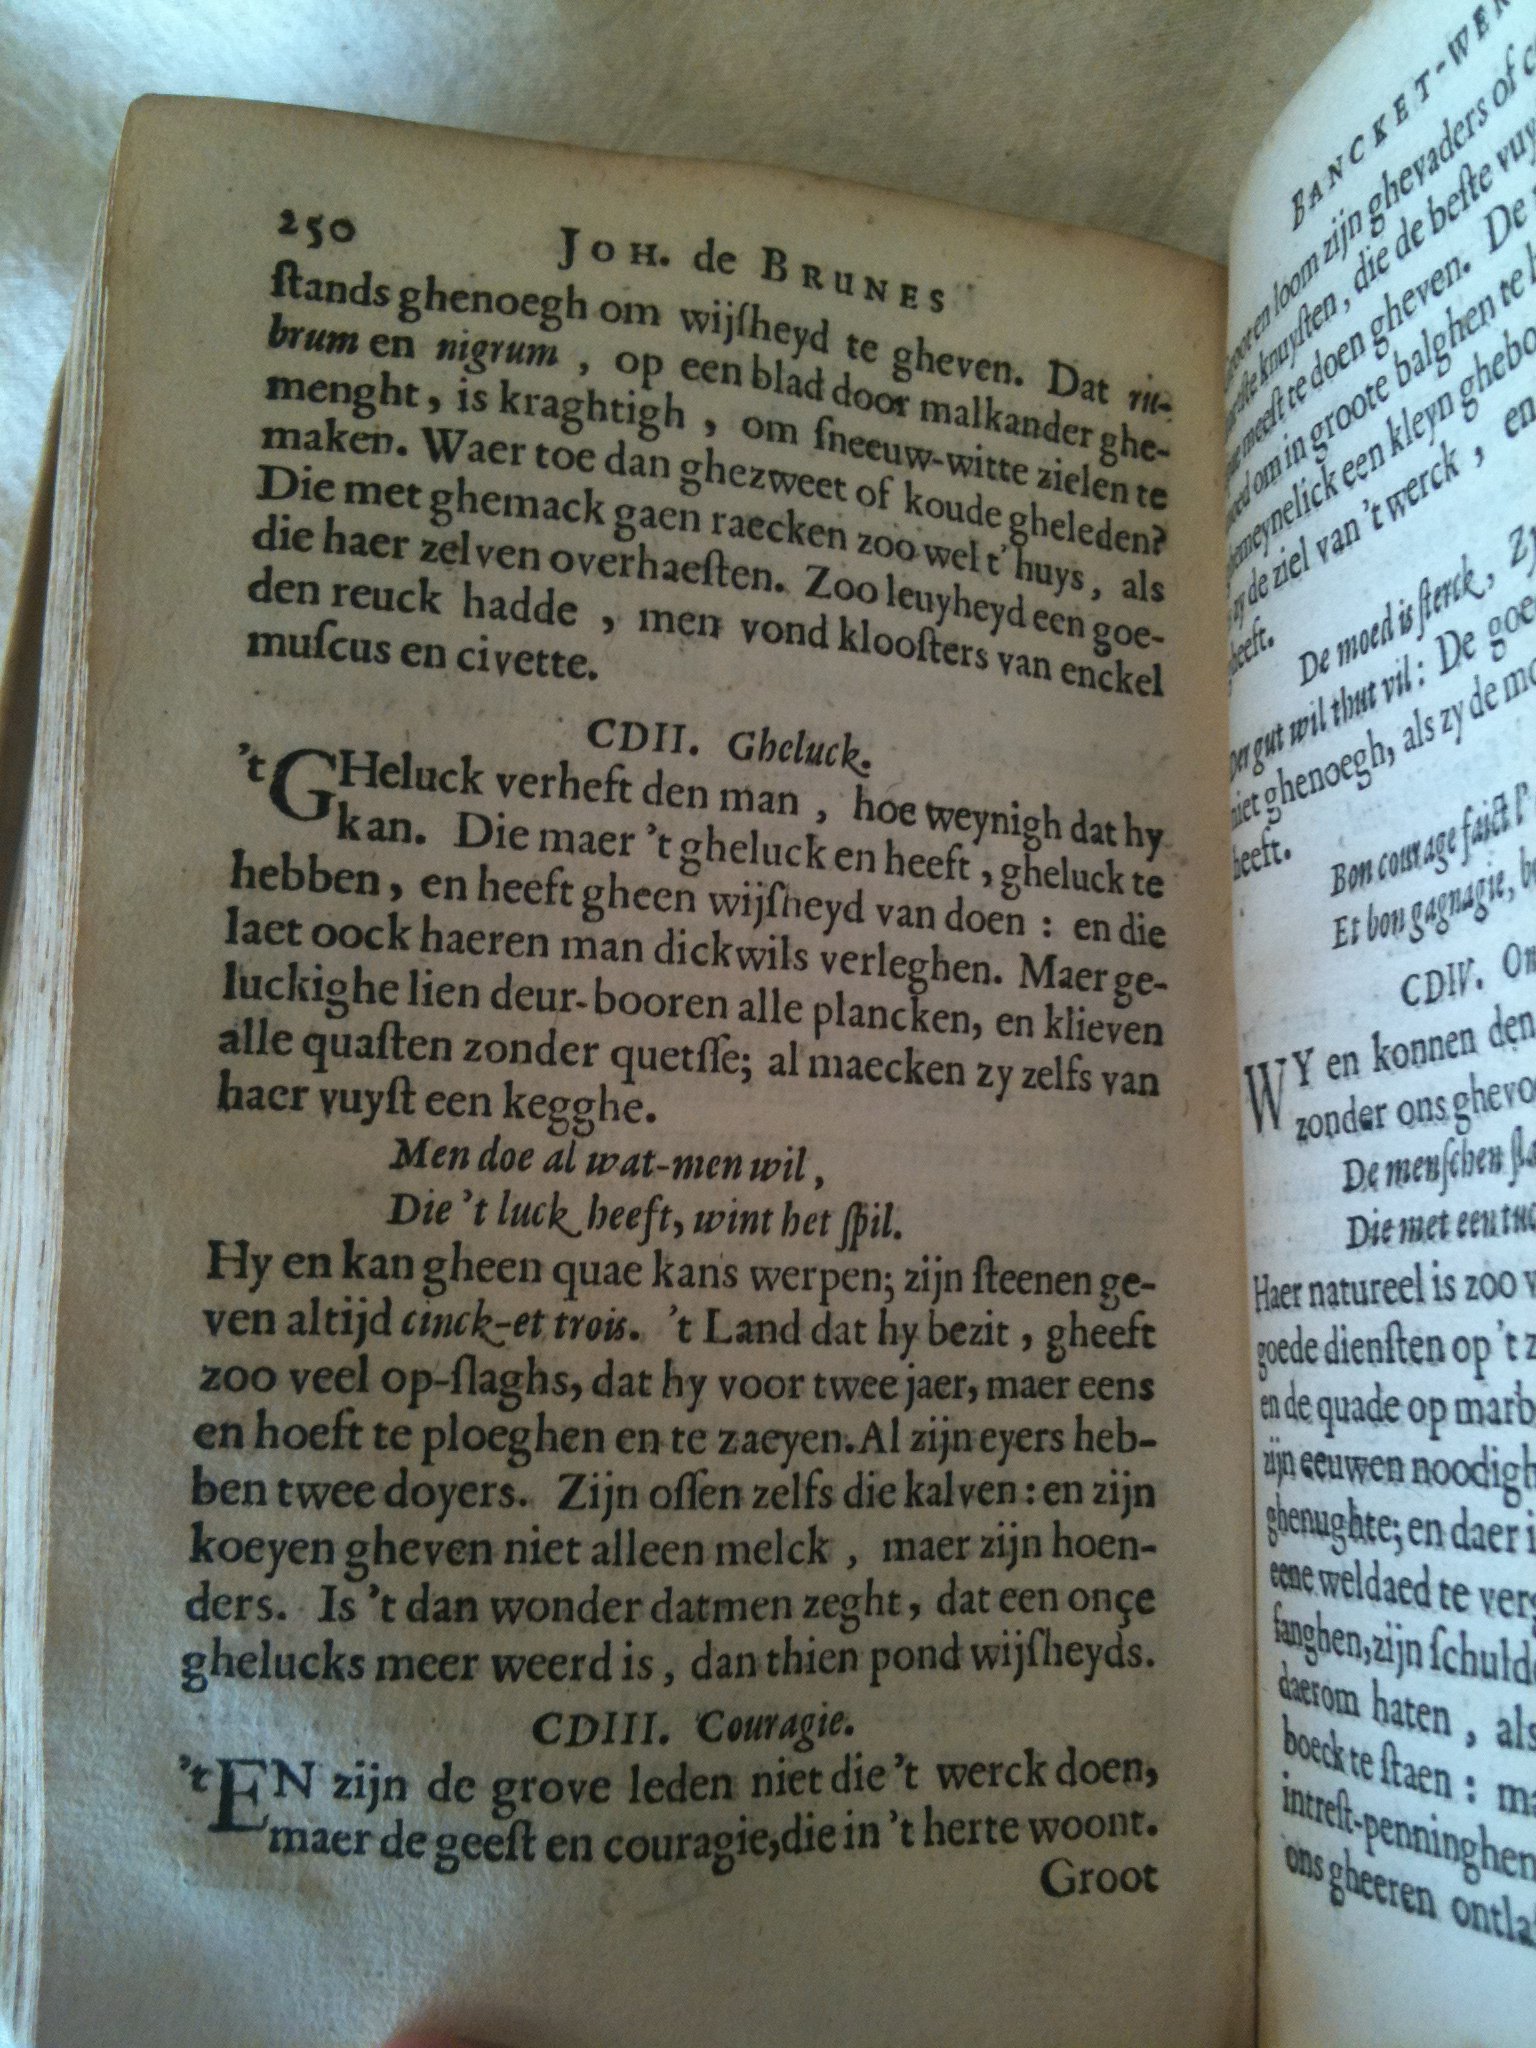 250 JOH. de BRUNES
ſtands ghenoegh om wijſheyd te gheven. Dat ru-
brum en nigrum , op een blad door malkander ghe-
menght, is kraghtigh , om ſneeuw-witte zielen te
maken. Waer toe dan ghezweet of koude gheleden?
Die met ghemack gaen raecken zoo wel t' huys, als
die haer zelven overhaeſten. Zoo leuyheyd een goe-
den reuck hadde , men vond klooſters van enckel
muſcus en civette.
CDII. Gheluck.
't GHeluck verheft den man , hoe weynigh dat hy
kan. Die maer 't gheluck en heeft , gheluck te
hebben, en heeft gheen wijſheyd van doen : en die
laet oock haeren man dickwils verleghen. Maer ge-
luckighe lien deur-booren alle plancken, en klieven
alle quaſten zonder quetſſe; al maecken zy zelfs van
haer vuyſt een kegghe.
Men doe al wat-men wil,
Die 't luck heeft, wint het ſpil.
Hy en kan gheen quae kans werpen; zijn ſteenen ge-
ven altijd cinck-et trois. 't Land dat hy bezit , gheeft
zoo veel op-ſlaghs, dat hy voor twee jaer, maer eens
en hoeft te ploeghen en te zaeyen. Al zijn eyers heb-
ben twee doyers. Zijn oſſen zelfs die kalven : en zijn
koeyen gheven niet alleen melck , maer zijn hoen-
ders. Is 't dan wonder datmen zeght, dat een onçe
ghelucks meer weerd is, dan thien pond wijſheyds.
CDIII. Couragie.
't EN zijn de grove leden niet die 't werck doen,
maer de geeſt en couragie, die in 't herte woont.
Groot
BANCKET-WER
en loom zijn ghevaders of
knuyſten, die de beſte
meeſt te doen gheven. De
om in groote balghen te
een kleyn
zy de ziel van 't werck , en
heeft.
De moed is ſterck,
Der gut wil thut vil: De
niet ghenoegh, als zy de
heeft.
Bon courage faict l'
Et bon gagnagie,
CDIV.
WY en konnen den
zonder ons
De menſchen
Die met een
Haer natureel is zoo
goede dienſten op 't
en de quade op
zijn eeuwen
ghenughte; en daer
eene weldaed te
fanghen, zijn
daerom haten , als
boeck te ſtaen :
intreſt-penninghen
ons gheeren